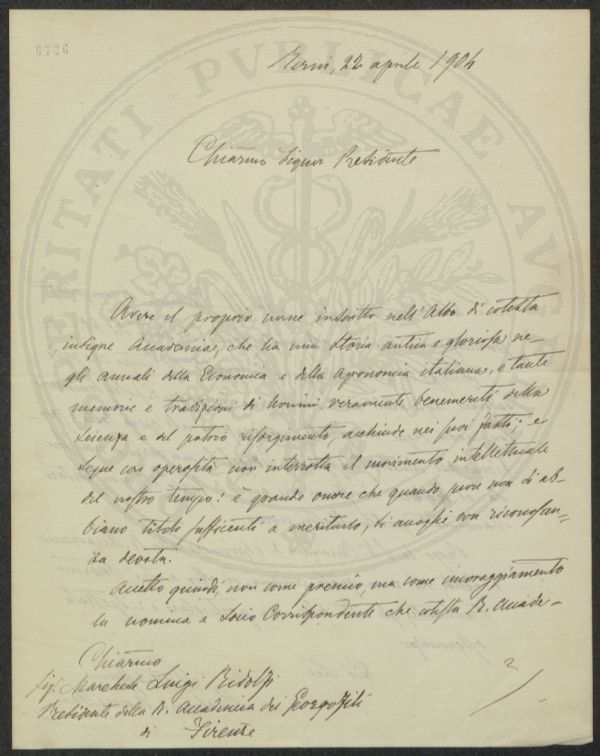 6726
PROSPERITATI PUBLICAE AU
Terni, 22 aprile 1904
Chiarmo Signor Presidente
Avere il proprio nome inscritto nell'Albo di cotesta
insigne Accademia, che ha una storia antica e gloriosa ne-
gli annali della Economia e della Agronomia italiana, e tante
memorie e tradizioni di uomini veramente benemeriti della
Scienza e del patrio risorgimento, acchiude nei suoi fasti; e
segue con operosità non interrotta il movimento intellettuale
del nostro tempo: è grande onore che quando pure non si ab-
biano titoli sufficienti a meritarlo, si accoglie con riconoscen-
za devota.
Accetto quindi, non come premio, ma come incoraggiamento
la nomina a Socio Corrispondente che cotesta R. Accade-
Chiarmo
Sig. Marchese Luigi Ridolfi
Presidente della R. Accademia dei Georgofili
di Firenze